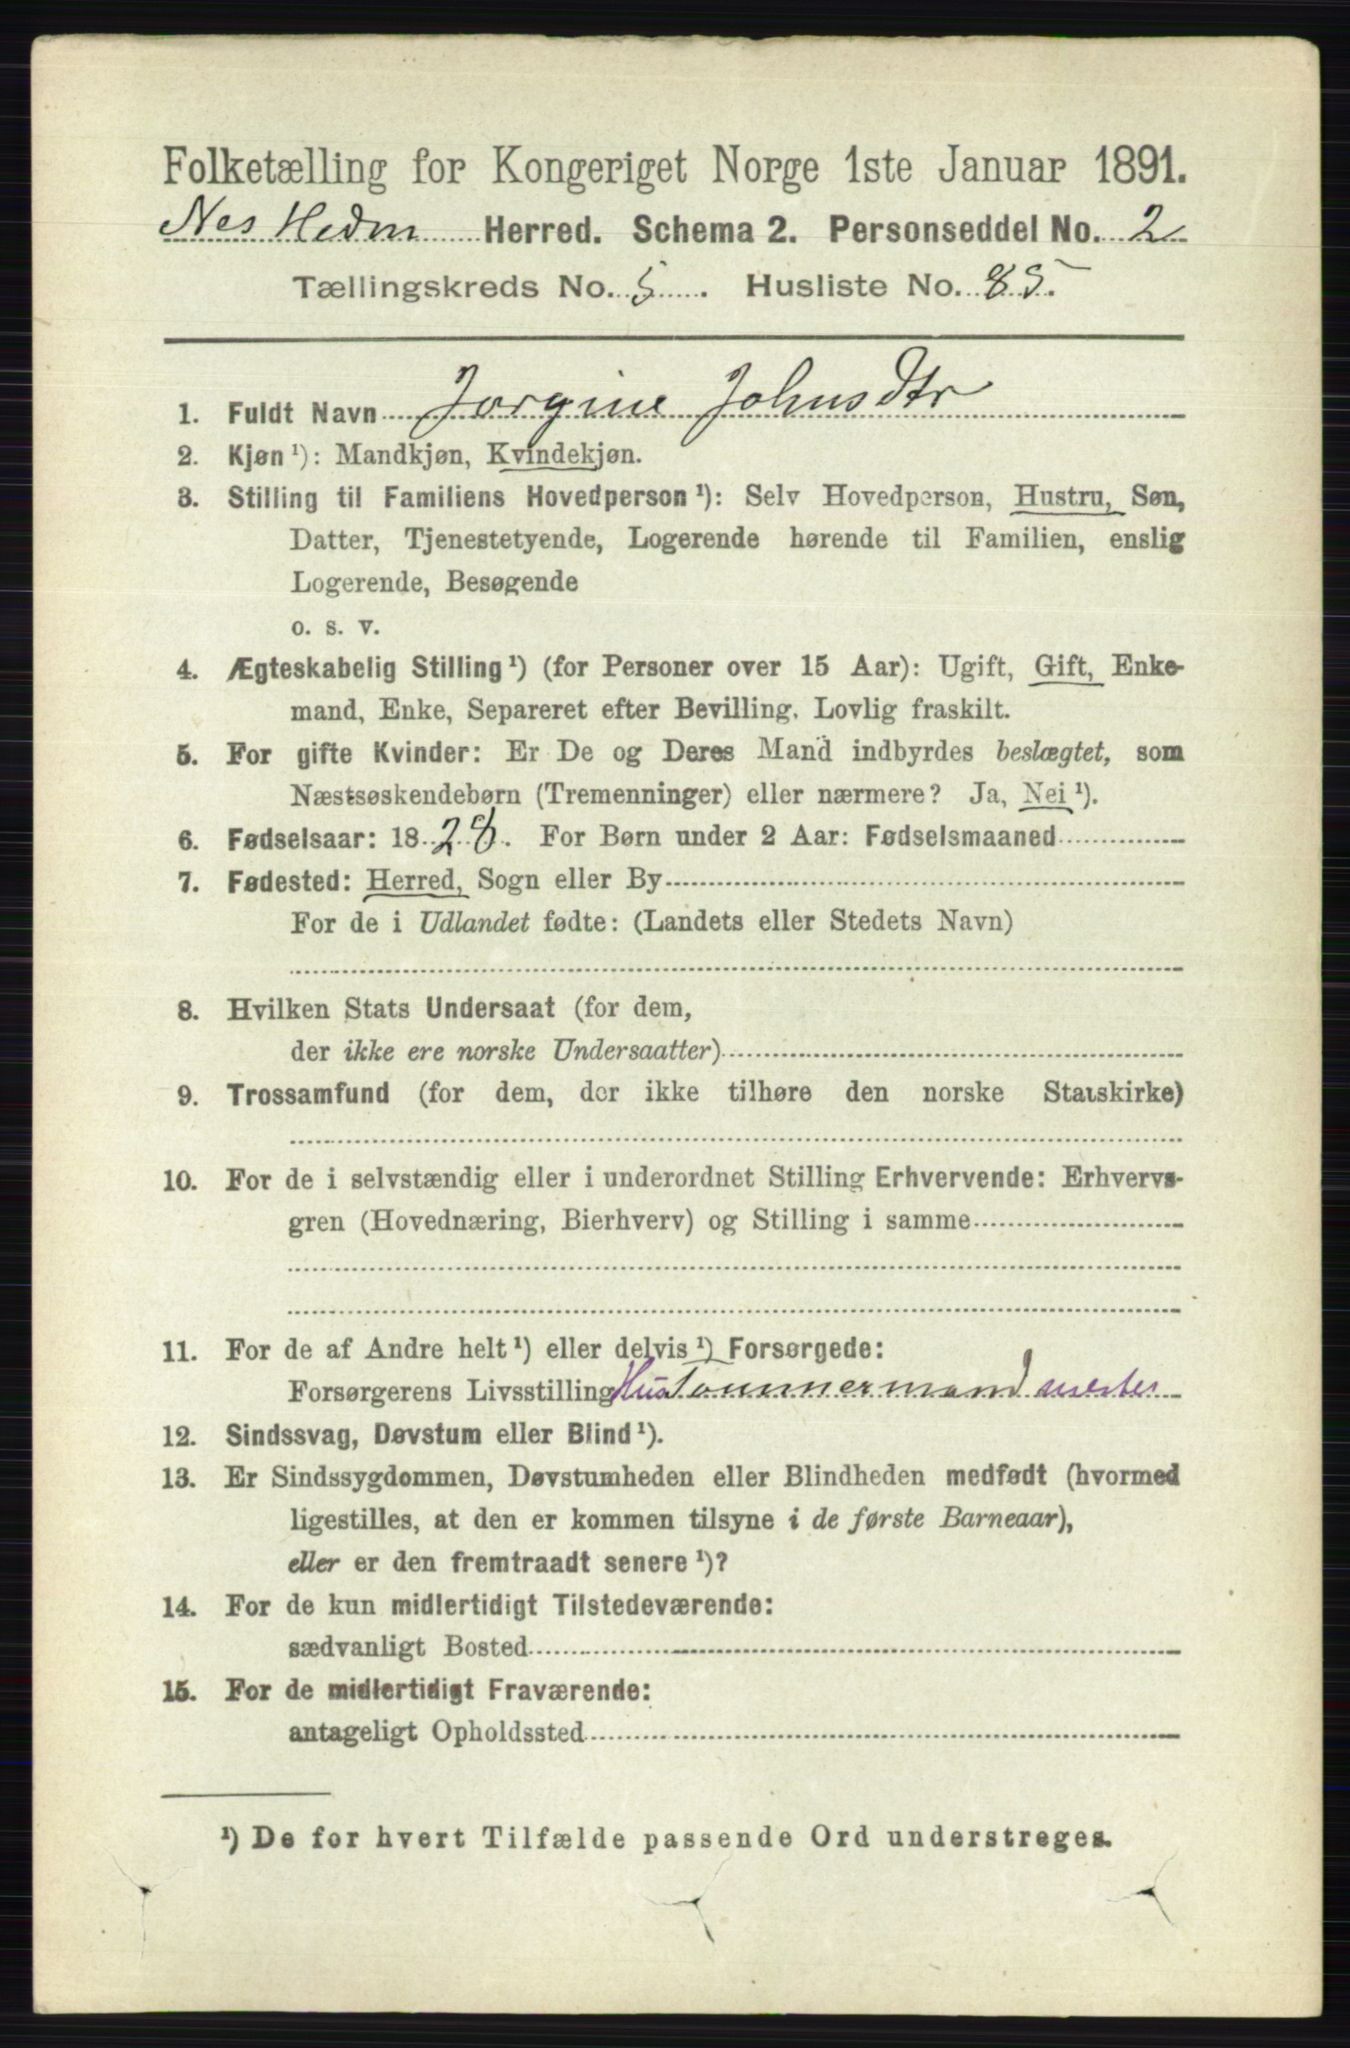 Folketælling for Kongeriget Norge 1ste Januar 1891.
Nes Hedm Herred. Schema 2. Personseddel No. 2
Tællingskreds No. 5. Husliste No. 85.
1. Fuldt Navn Jørgine Johnsdtr
2. Kjøn ¹): Mandkjøn, Kvindekjøn.
3. Stilling til Familiens Hovedperson ¹): Selv Hovedperson, Hustru, Søn,
Datter, Tjenestetyende, Logerende hørende til Familien, enslig
Logerende, Besøgende
o. s. v.
4. Ægteskabelig Stilling ¹) (for Personer over 15 Aar): Ugift, Gift, Enke-
mand, Enke, Separeret efter Bevilling, Lovlig fraskilt.
5. For gifte Kvinder: Er De og Deres Mand indbyrdes beslægtet, som
Næstsøskendebørn (Tremenninger) eller nærmere? Ja, Nei ¹).
6. Fødselsaar: 1828. For Børn under 2 Aar: Fødselsmaaned
7. Fødested: Herred, Sogn eller By
For de i Udlandet fødte: (Landets eller Stedets Navn)
8. Hvilken Stats Undersaat (for dem,
der ikke ere norske Undersaatter)
9. Trossamfund (for dem, der ikke tilhøre den norske Statskirke)
10. For de i selvstændig eller i underordnet Stilling Erhvervende: Erhvervs-
gren (Hovednæring, Bierhverv) og Stilling i samme
11. For de af Andre helt ¹) eller delvis ¹) Forsørgede:
Forsørgerens Livsstilling Hus Tømmermand
12. Sindssvag, Døvstum eller Blind ¹).
13. Er Sindssygdommen, Døvstumheden eller Blindheden medfødt (hvormed
ligestilles, at den er kommen tilsyne i de første Barneaar),
eller er den fremtraadt senere ¹)?
14. For de kun midlertidigt Tilstedeværende:
sædvanligt Bosted
15. For de midlertidigt Fraværende:
antageligt Opholdssted
¹) De for hvert Tilfælde passende Ord understreges.